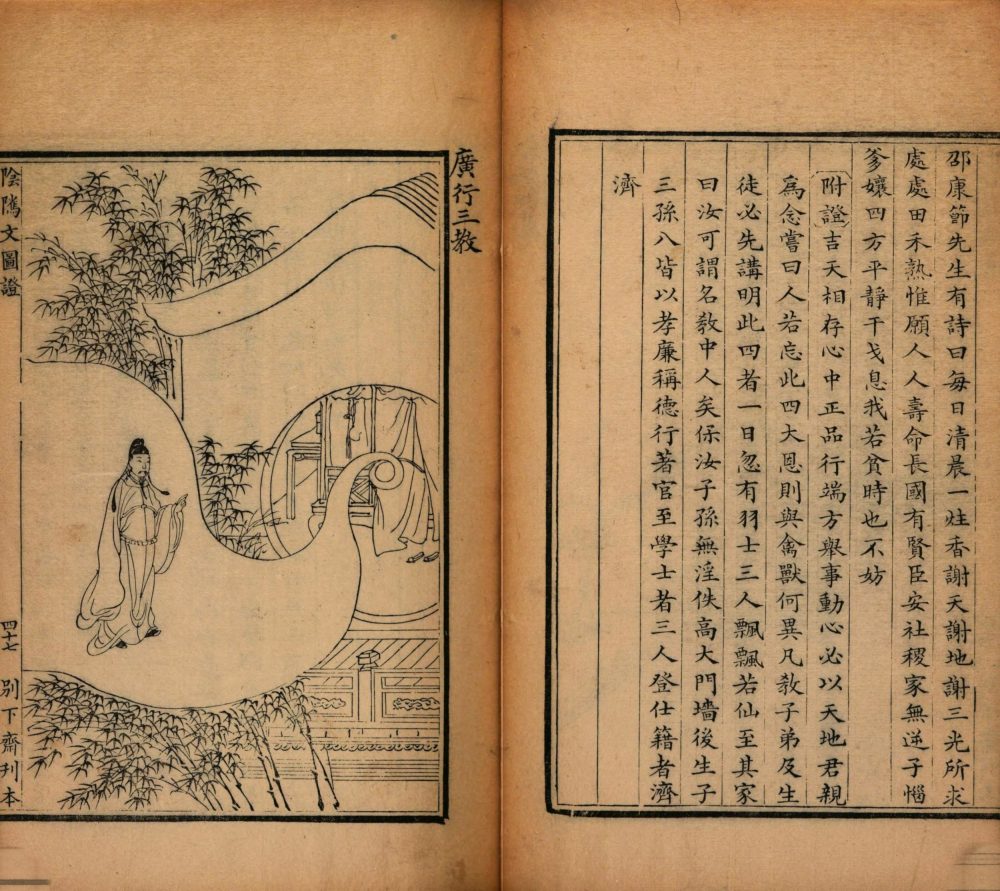 邵康節先生有詩曰每日清晨一炷香謝天謝地謝三光所求
處處田禾熟惟願人人壽命長國有賢臣安社稷家無逆子惱
爹孃四方平靜干戈息我若貧時也不妨
附證吉天相存心中正品行端方舉事動心必以天地君親
爲念嘗曰人若忘此四大恩則與禽獸何異凡敎子弟及生
徒必先講明此四者一日忽有羽士三人飄飄若仙至其家
曰汝可謂名敎中人矣保汝子孫無淫佚高大門墻後生子
三孫八皆以孝廉稱德行著官至學士者三人登仕籍者濟
濟
廣行三教
陰隲文圖證
四十七
別下齋刋本